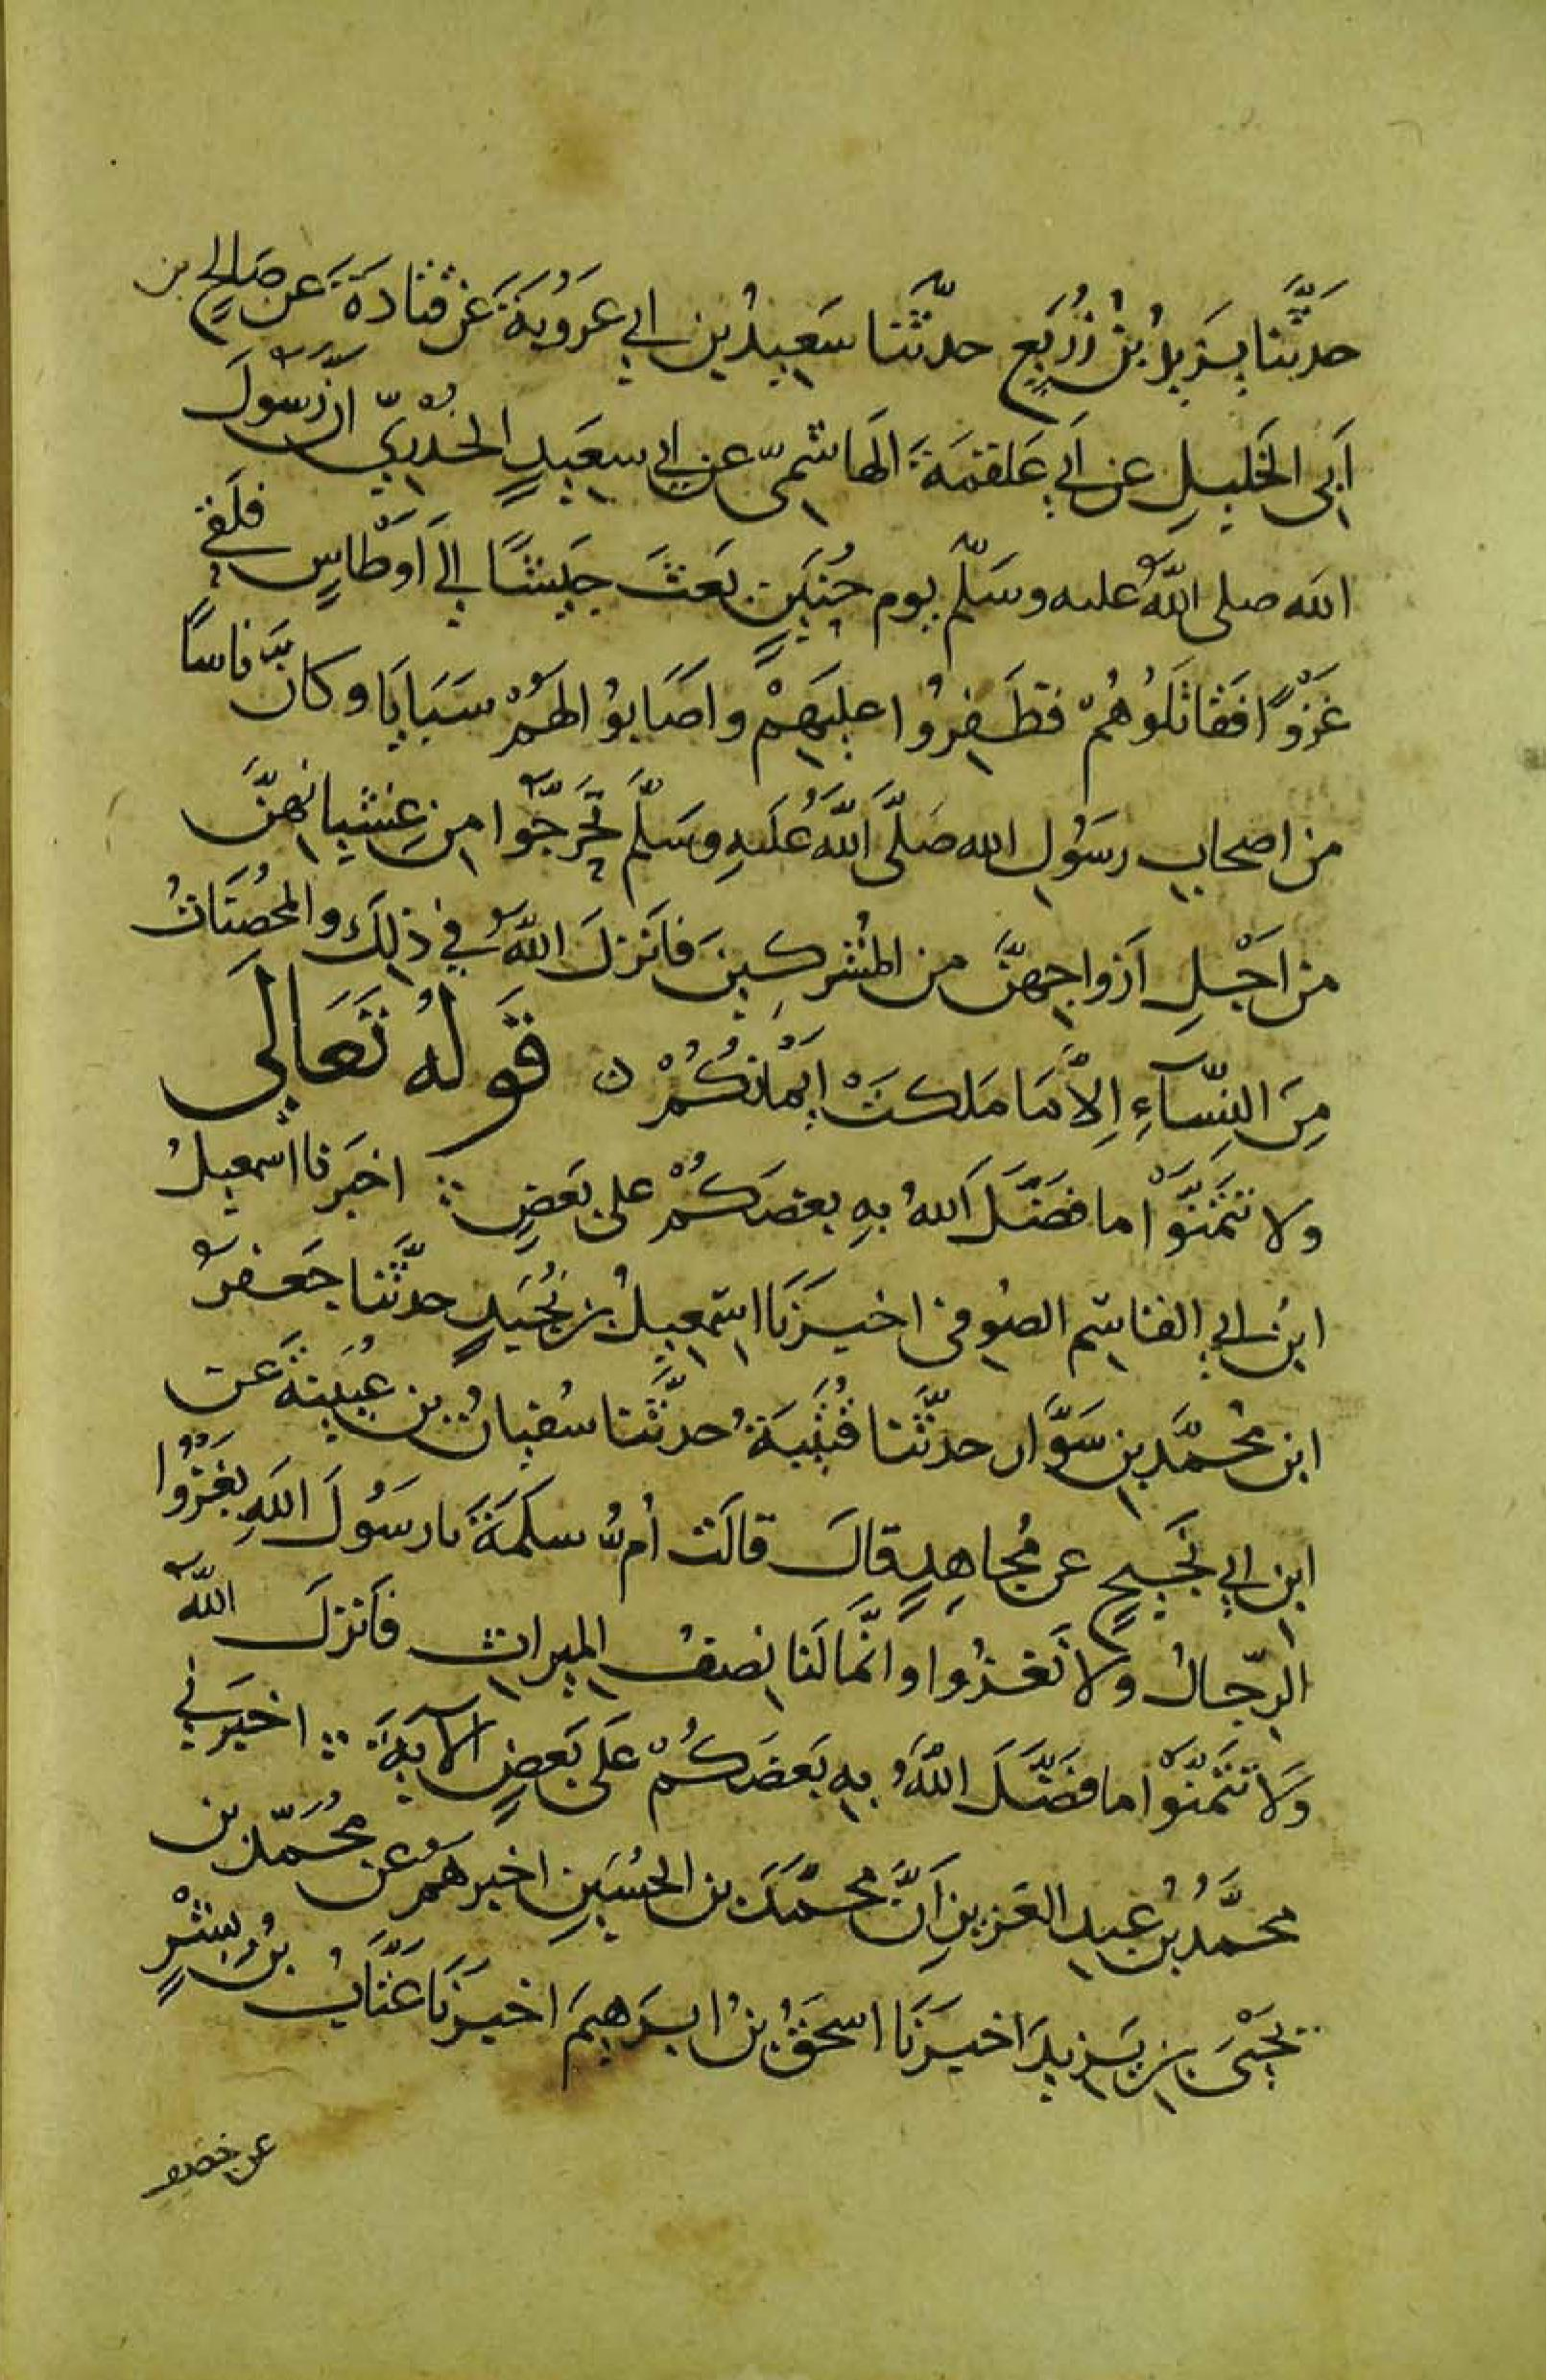 حَدَّثَنا يَزيدُ بْنُ زُرَيعٍ حدثَّنا سَعِيدُ بن ابي عَرُوبَةَ عَن قتادَةَ عَن صَالحِ بن
أَبي الخَليلِ عن أَبي عَلقمَةَ الهَاشميّ عن ابي سعيدٍ الخُدْريّ انَّ رَسُولَ
الله صلى اللهُ عليه وسَلّم يوم حُنَينٍ بَعَثَ جَيشًا إلى أَوْطَاسٍ فلَقي
غَزْوًا فَقاتَلُوهُمْ فظَفِروُا عليَهِمْ واصَابوُا لهَمُ سَبَايَا وكانَّ ناسًا
من اصحابِ رسَوُلِ الله صَلَّى اللَّهُ عَلَيهِ وسَلّم تَحَرَّجُوا مِن غِشْيانِهنَّ
من أجْلِ أَزواجِهنَّ من المُشركِينَ فأنزلَ اللهُ في ذلِكَ والمُحْصَنَاتُ
مِنَ النِّسآءِ إلاَّ مَا مَلكتْ أَيْمانُكُمْ ن قَولُهُ تَعَالَى
ولا تتَمَنَّوْا ما فضَّلَ اللهُ بهِ بعضَكُمْ على بَعضٍ ∴ اخبَرنا اسمعيلُ
ابنُ ابي القاسِم الصوُفي اخبَرَنَا اسْمعِيلُ بن نُجَيدٍ حدَّثَنا جَعفرُ
ابن مُحمَّد بن سَوَّار حدثَّنا قُتَيْبَةُ حدثَّنا سُفيانُ بن عُيَينةَ عَن
ابنِ ابي نَجِيحٍ عن مُجاهِدٍ قالَ قالَت أمُّ سَلَمَةَ يا رسَوُلَ اللهِ يَغزُوا
الرِجّالُ ولاَ نَغزُوا وانَّما لَنا نِصفُ الميراثِ فأَنزلَ اللهُ
وَلاَ تتَمَنَّوْا ما فضَّلَ اللهُ بهِ بَعضَكُمْ عَلَى بَعضٍ الآيةَ ∴ اخبَرني
محمَّدُ بنُ عَبدِ العَزيزِ أنَّ محمَّدَ بن الحُسَينِ اخبرهُم عن مُحمّد بن
يَحيَى بنِ يَزيدَ اخبَرَنَا اسحَقُ بنُ ابرَهيمَ اخبَرَنَا عَتَّابُ بنُ بشْرٍ
عن خصيف